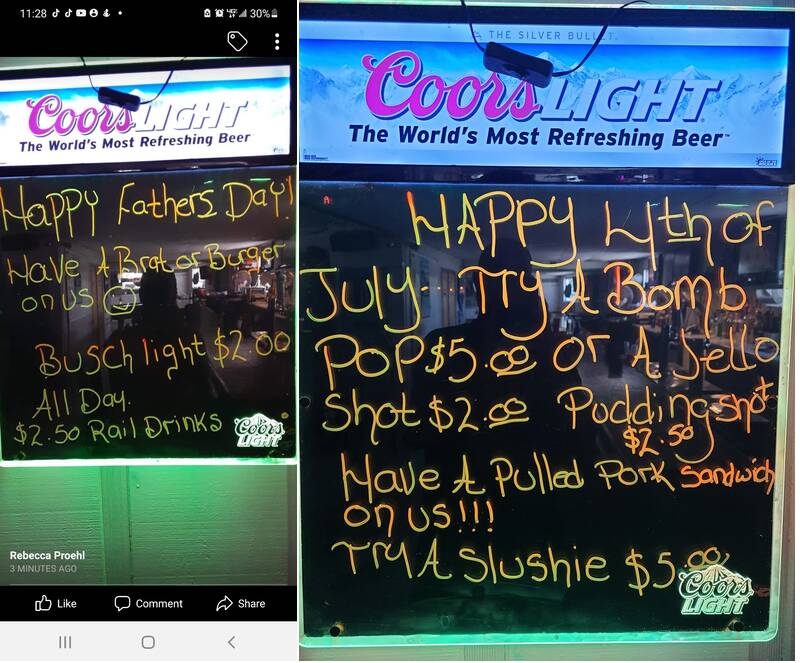 11:28
30%
Coors LIGHT
The World's Most Refreshing Beer
HAPPY Fathers Day!
Have A Brat or Burger
on us
Busch light $2.00
All Day.
$2.50 Rail Drinks
Coors
LIGHT
Rebecca Proehl
3 MINUTES AGO
Like
Comment
Share
THE SILVER BULLET.
Coors LIGHT
The World's Most Refreshing Beer™
HAPPY 4th of
July...Try A Bomb
Pop $5.00 or A Jello
Shot $2.00 Pudding shot
$2.50
Have A Pulled Pork Sandwich
on us!!!
Try A Slushie $5.00
Coors
LIGHT